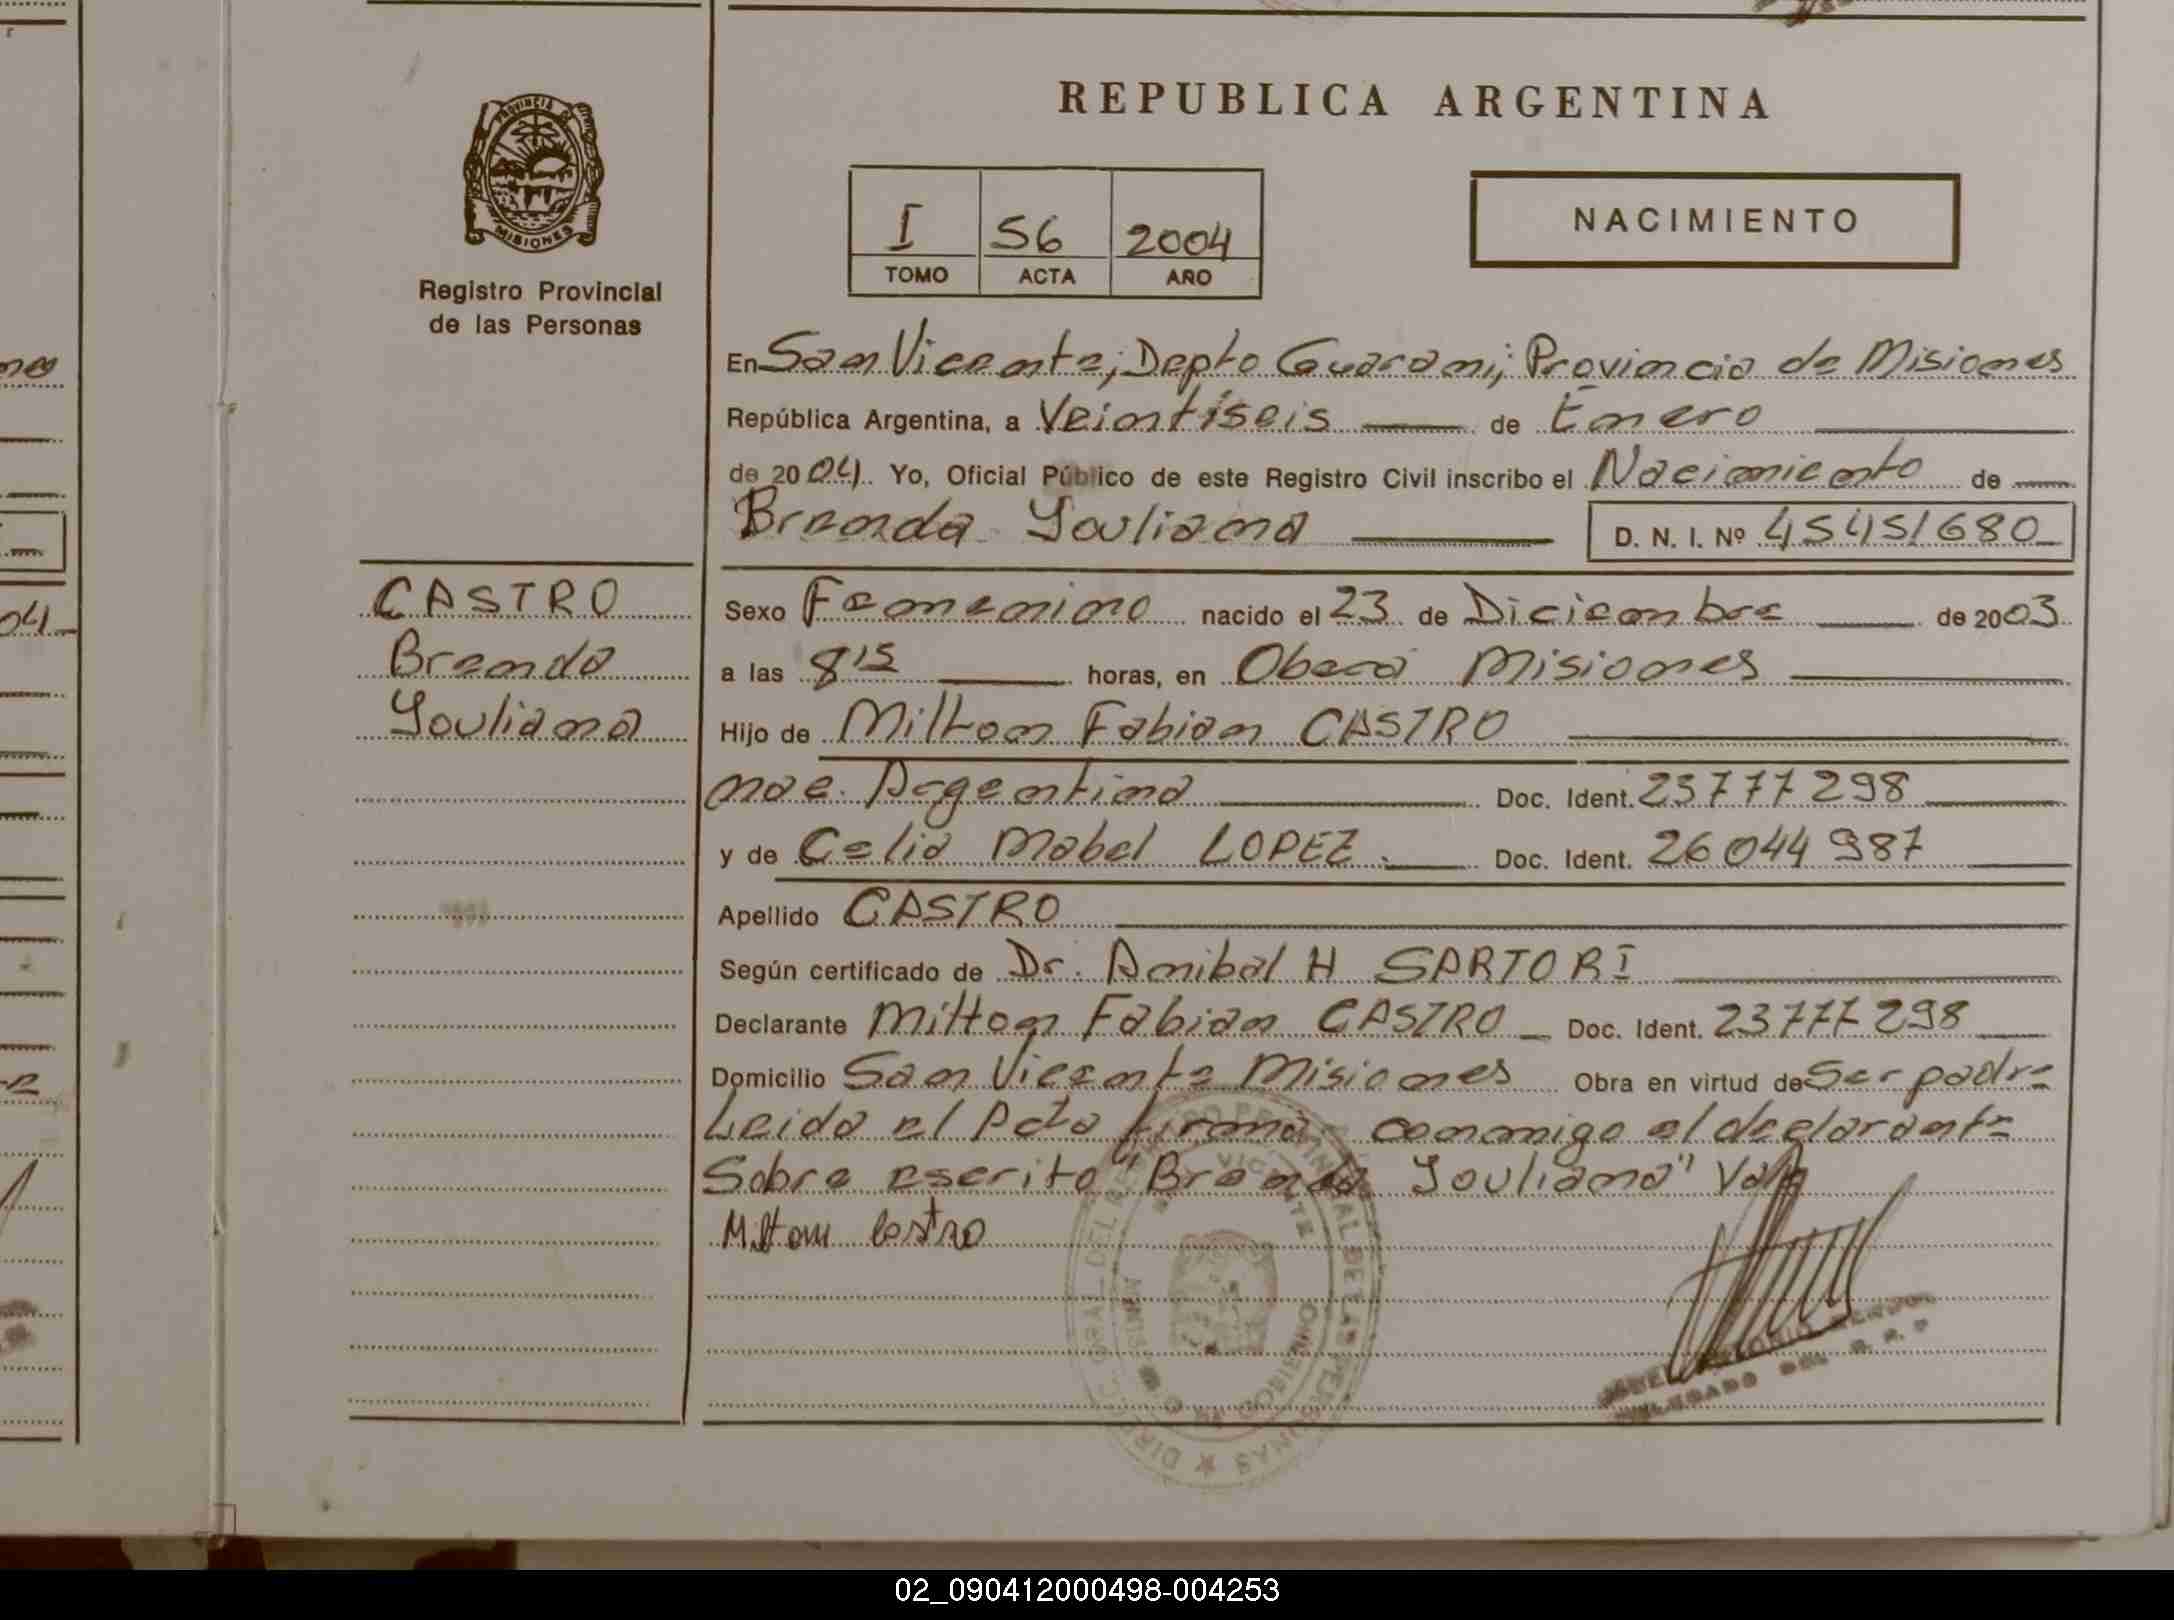 REPUBLICA ARGENTINA
PROVINCIA DE
MISIONES
Registro Provincial
de las Personas
I 56 2004
TOMO ACTA AÑO
NACIMIENTO
En San Vicente; Depto Guarani; Provincia de Misiones
República Argentina, a Veintiseis de Enero
de 2004. Yo, Oficial Público de este Registro Civil inscribo el Nacimiento de
Brenda Youliana
D. N. I. Nº 45451680
CASTRO
Brenda
Youliana
Sexo Femenino nacido el 23 de Diciembre de 2003
a las 8 15 horas, en Obera Misiones
Hijo de Milton Fabian CASTRO
nac. Argentina Doc. Ident. 23777298
y de Celia Mabel LOPEZ. Doc. Ident. 26044987
Apellido CASTRO
Según certificado de Dr. Anibal H SARTORI
Declarante Milton Fabian CASTRO Doc. Ident. 23777298
Domicilio San Vicente Misiones Obra en virtud de Ser padre
Leido el Acta firma conmigo el declarante
Sobre escrito "Brenda Youliana" Vale
Milton Castro
DEL REGISTRO PROVINCIAL DE LAS PERSONAS
VICENTE
MISIONES
GOBIERNO
DELEGADO DEL R. P. P
02_090412000498-004253